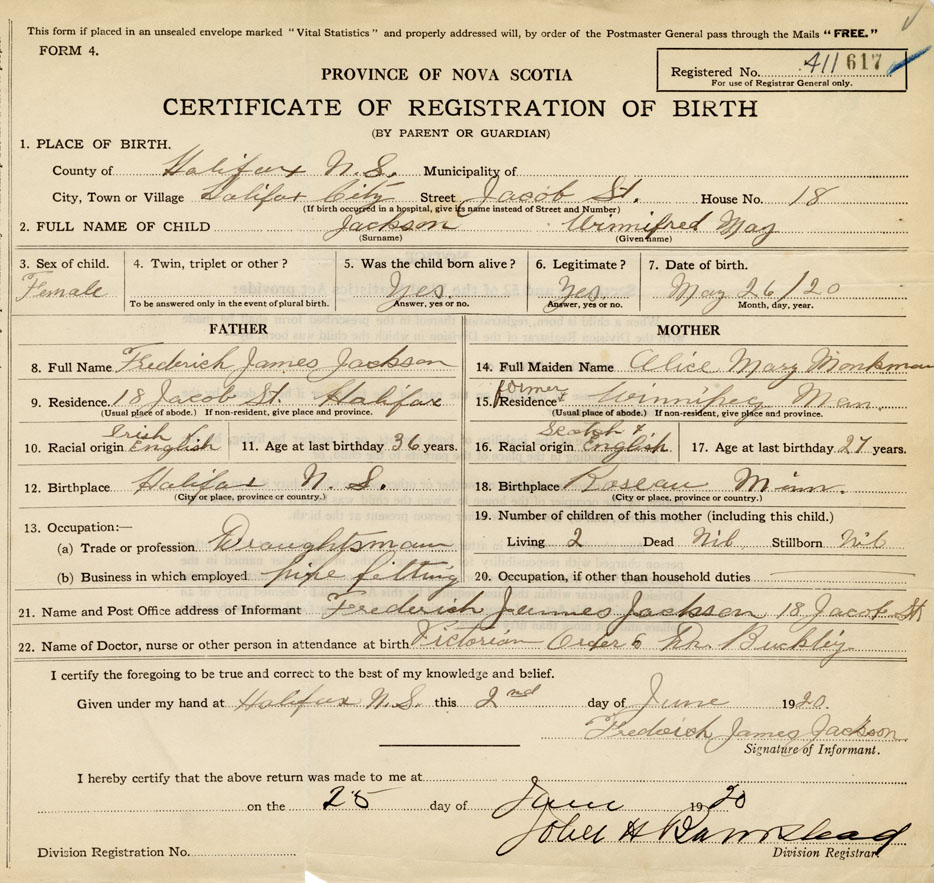 This form if placed in an unsealed envelope marked "Vital Statistics" and properly addressed will, by order of the Postmaster General pass through the Mails "FREE."
FORM 4.
Registered No. 411 617
For use of Registrar General only.
PROVINCE OF NOVA SCOTIA
CERTIFICATE OF REGISTRATION OF BIRTH
(BY PARENT OR GUARDIAN)
1. PLACE OF BIRTH.
County of Halifax N.S. Municipality of
City, Town or Village Halifax City Street Jacob St. House No. 18
(If birth occurred in a hospital, give its name instead of Street and Number)
2. FULL NAME OF CHILD Jackson Winnifred May
(Surname) (Given name)
3. Sex of child. 4. Twin, triplet or other? 5. Was the child born alive? 6. Legitimate? 7. Date of birth.
Female Yes Yes. May 26/20
To be answered only in the event of plural birth. Answer, yes or no. Answer, yes or no. Month, day, year.
FATHER
8. Full Name Frederick James Jackson
9. Residence. 18 Jacob St. Halifax
(Usual place of abode.) If non-resident, give place and province.
Irish &
10. Racial origin English 11. Age at last birthday 36 years.
12. Birthplace Halifax N.S.
(City or place, province or country.)
13. Occupation:—
(a) Trade or profession Draughtsman
(b) Business in which employed pipe fitting
MOTHER
14. Full Maiden Name Alice Mary Monkman
former
15. Residence Winnipeg Man.
(Usual place of abode.) If non-resident, give place and province.
Scotch &
16. Racial origin English 17. Age at last birthday 27 years.
18. Birthplace Roseau Minn.
(City or place, province or country.)
19. Number of children of this mother (including this child.)
Living 2 Dead Nil Stillborn Nil
20. Occupation, if other than household duties
21. Name and Post Office address of Informant Frederick James Jackson 18 Jacob St
22. Name of Doctor, nurse or other person in attendance at birth Victorian Order & Dr. Buckley
I certify the foregoing to be true and correct to the best of my knowledge and belief.
Given under my hand at Halifax N.S. this 2nd day of June 1920.
Frederick James Jackson
Signature of Informant.
I hereby certify that the above return was made to me at
on the 25 day of June 1920
John H Barnstead
Division Registrar.
Division Registration No.